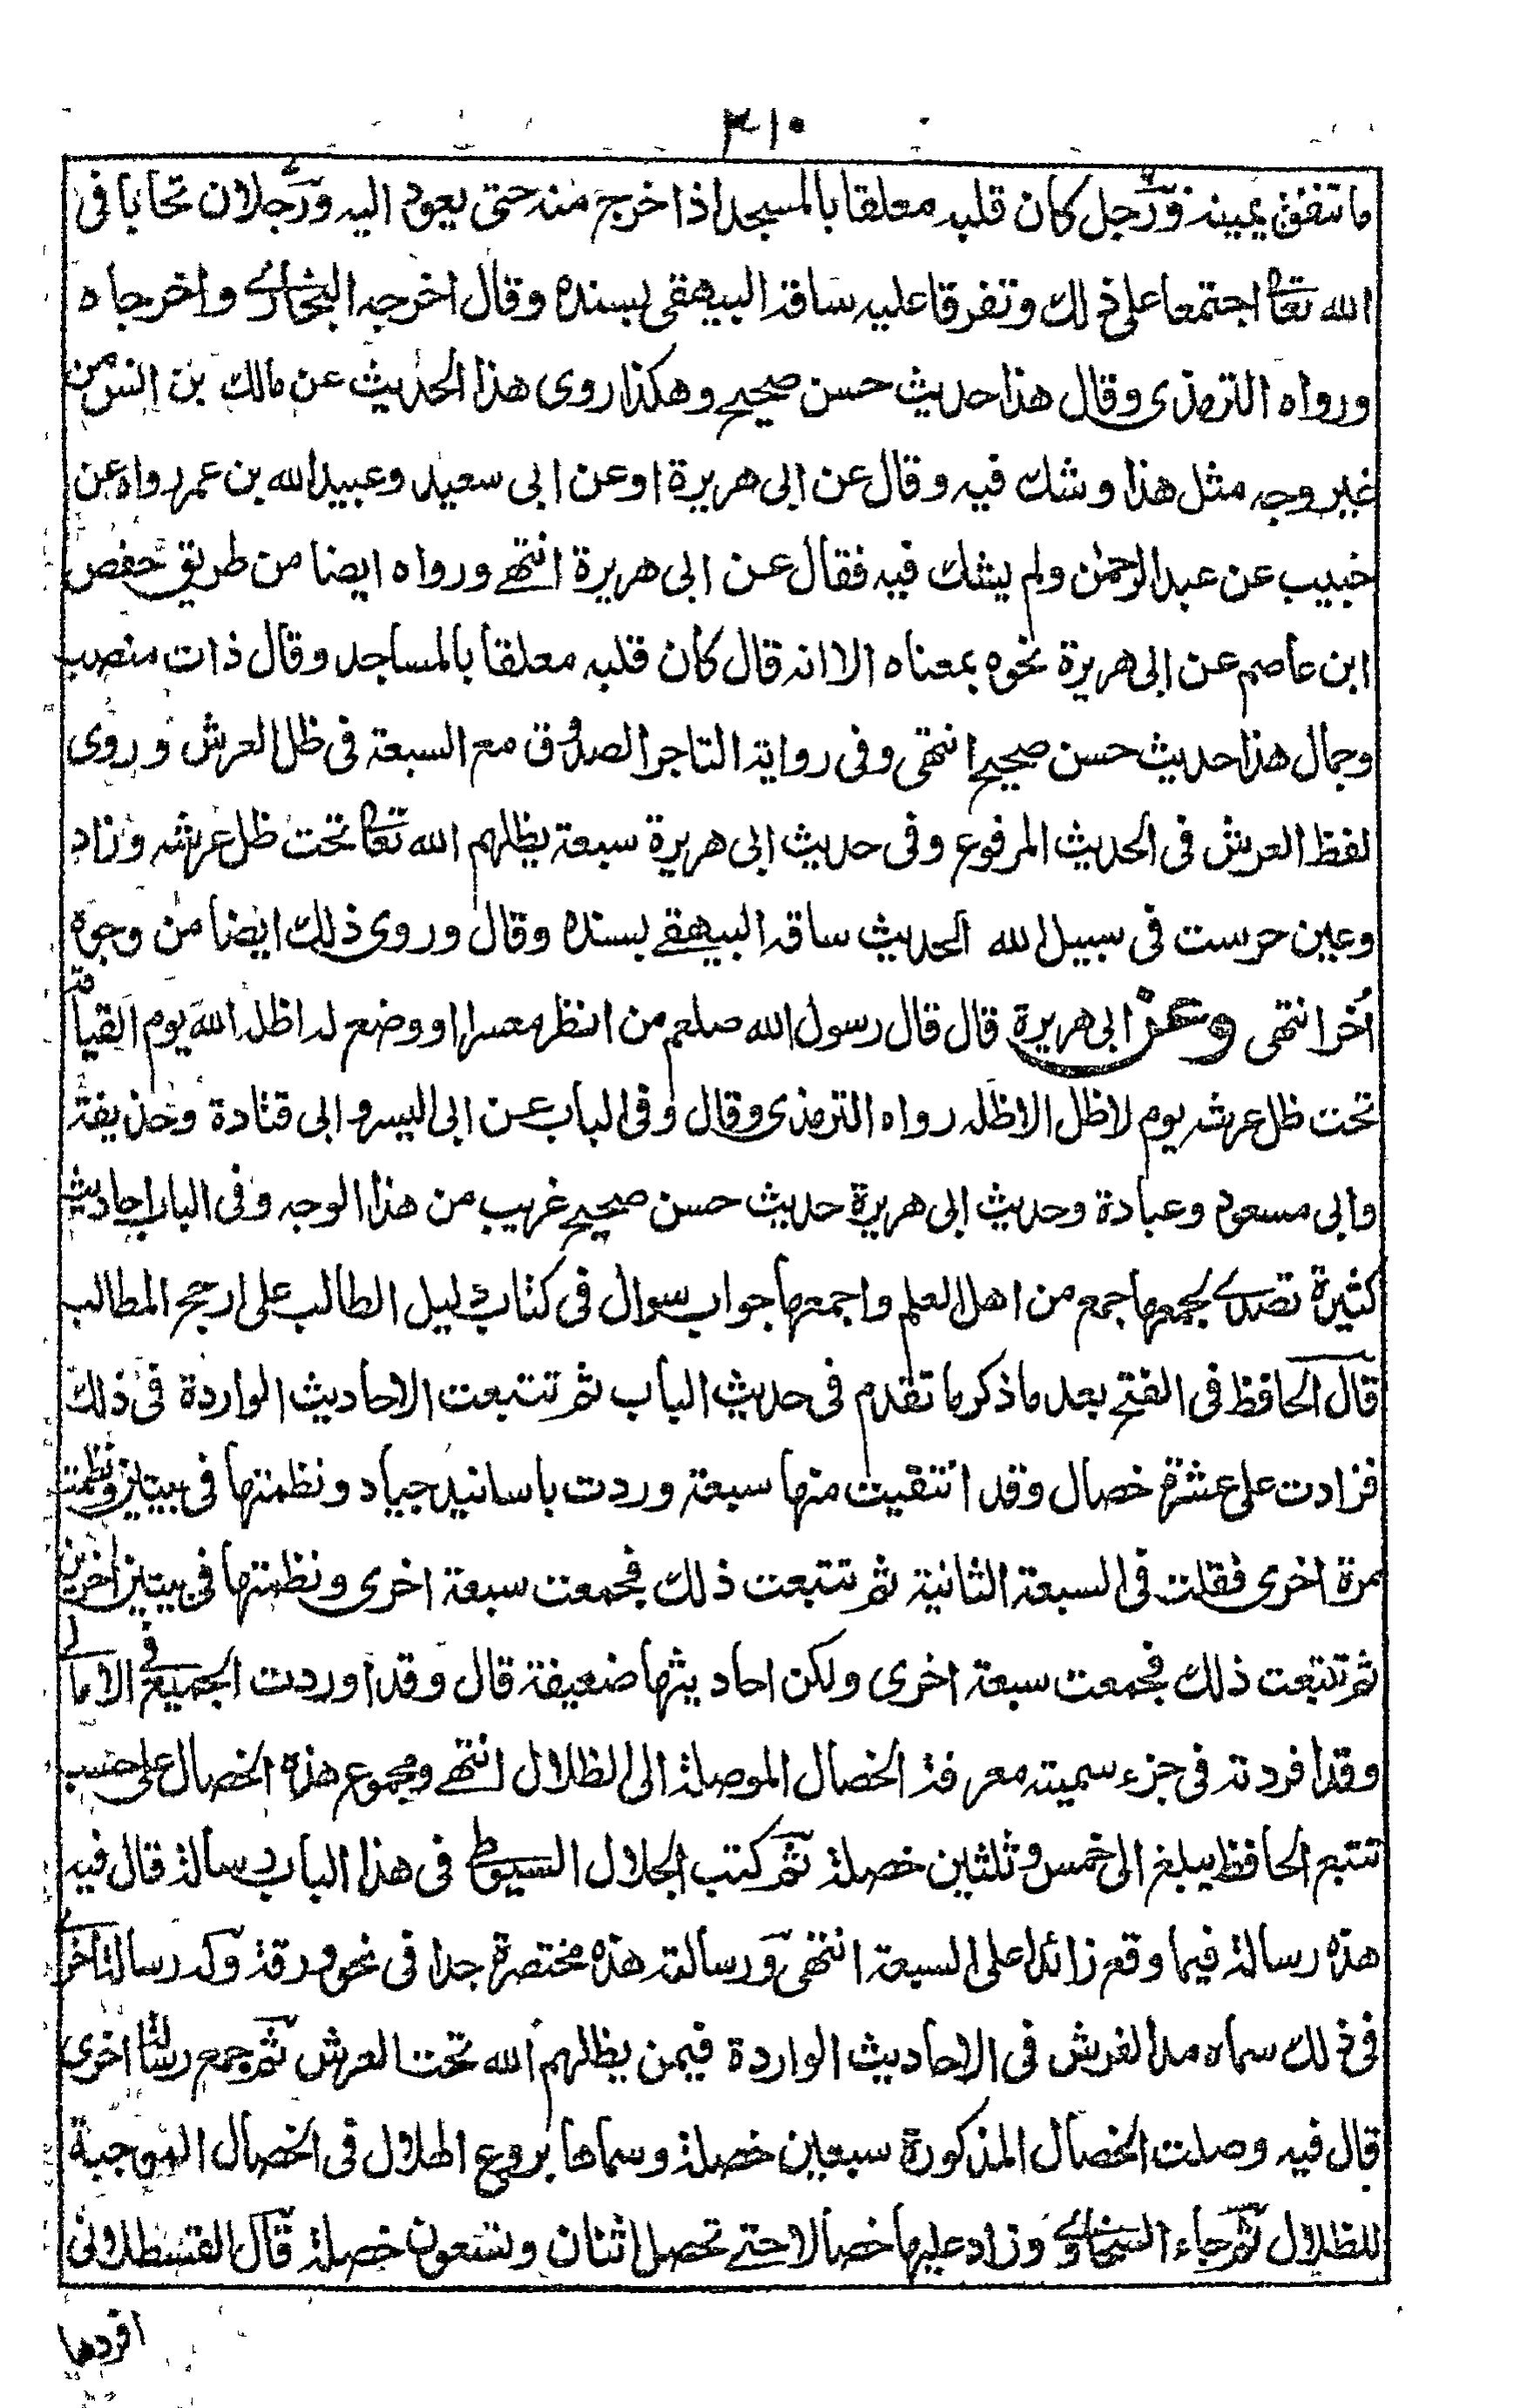 ٣١٠
ما تنفق يمينه ورجل كان قلبه معلقا بالمسجد اذا خرج منه حتى يعود اليه ورجلان تحابا فى
الله تعالى اجتمعا على ذلك وتفرقا عليه ساقه البيهقى بسنده وقال اخرجه البخارى واخرجاه
ورواه الترمذى وقال هذا حديث حسن صحيح وهكذا روى هذا الحديث عن مالك بن انس من
غير وجه مثل هذا وشك فيه وقال عن ابى هريرة او عن ابى سعيد وعبيد الله بن عمر رواه عن
خبيب عن عبد الرحمن ولم يشك فيه فقال عن ابى هريرة انتهى ورواه ايضا من طريق حفص
ابن عاصم عن ابى هريرة نحوه بمعناه الا انه قال كان قلبه معلقا بالمساجد وقال ذات منصب
وجمال هذا حديث حسن صحيح انتهى وفى رواية التاجر الصدوق مع السبعة فى ظل العرش وروى
لفظ العرش فى الحديث المرفوع وفى حديث ابى هريرة سبعة يظلهم الله تعالى تحت ظل عرشه وزاد
وعين حرست فى سبيل الله الحديث ساقه البيهقى بسنده وقال وروى ذلك ايضا من وجوه
أخر انتهى وعن ابى هريرة قال قال رسول الله صلعم من انظر معسرا او وضع له اظله الله يوم القيامة
تحت ظل عرشه يوم لا ظل الا ظله رواه الترمذى وقال وفى الباب عن ابى اليسر وابى قتادة وحذيفة
وابى مسعود وعبادة وحديث ابى هريرة حديث حسن صحيح غريب من هذا الوجه وفى الباب احاديث
كثيرة تصدى لجمعها جمع من اهل العلم واجمعها جواب سوال فى كتاب دليل الطالب على ارجح المطالب
قال الحافظ فى الفتح بعد ما ذكر ما تقدم فى حديث الباب ثم تتبعت الاحاديث الواردة فى ذلك
فزادت على عشرة خصال وقد انتقيت منها سبعة وردت باسانيد جياد ونظمتها فى بيتين ونظمت
مرة اخرى فقلت فى السبعة الثانية ثم تتبعت ذلك فجمعت سبعة اخرى ونظمتها فى بيتين اخرين
ثم تتبعت ذلك فجمعت سبعة اخرى ولكن احاديثها ضعيفة قال وقد اوردت الجميع فى الامالى
وقد افردته فى جزء سميته معرفة الخصال الموصلة الى الظلال انتهى ومجموع هذه الخصال على حسب
تتبع الحافظ يبلغ الى خمس وثلثين خصلة ثم كتب الجلال السيوطى فى هذا الباب رسالة قال فيه
هذه رسالة فيما وقع زائدا على السبعة انتهى ورسالته هذه مختصرة جدا فى نحو ورقة وله رسالة اخرى
فى ذلك سماه مد الفرش فى الاحاديث الواردة فيمن يظلهم الله تحت العرش ثم جمع رسالة اخرى
قال فيه وصلت الخصال المذكورة سبعين خصلة وسماها بزوغ الهلال فى الخصال الموجبة
للظلال ثم جاء السخاوى وزاد عليها خصالا حتى تحصل اثنان وتسعون خصلة قال القسطلانى
افردها